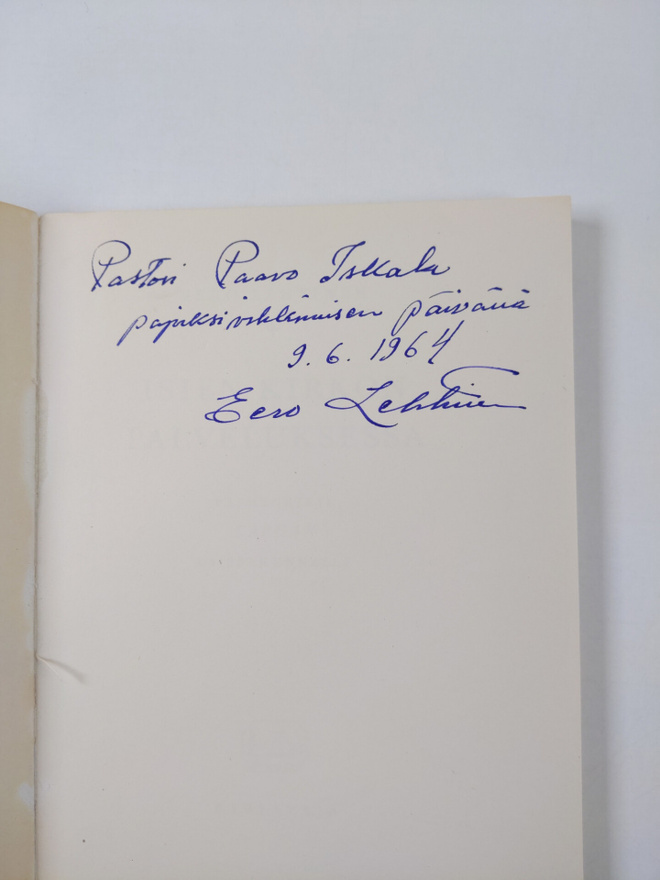 Pastori Paavo Iskala
papiksivihkimisen päivänä
9.6.1964
Eero Lehtinen